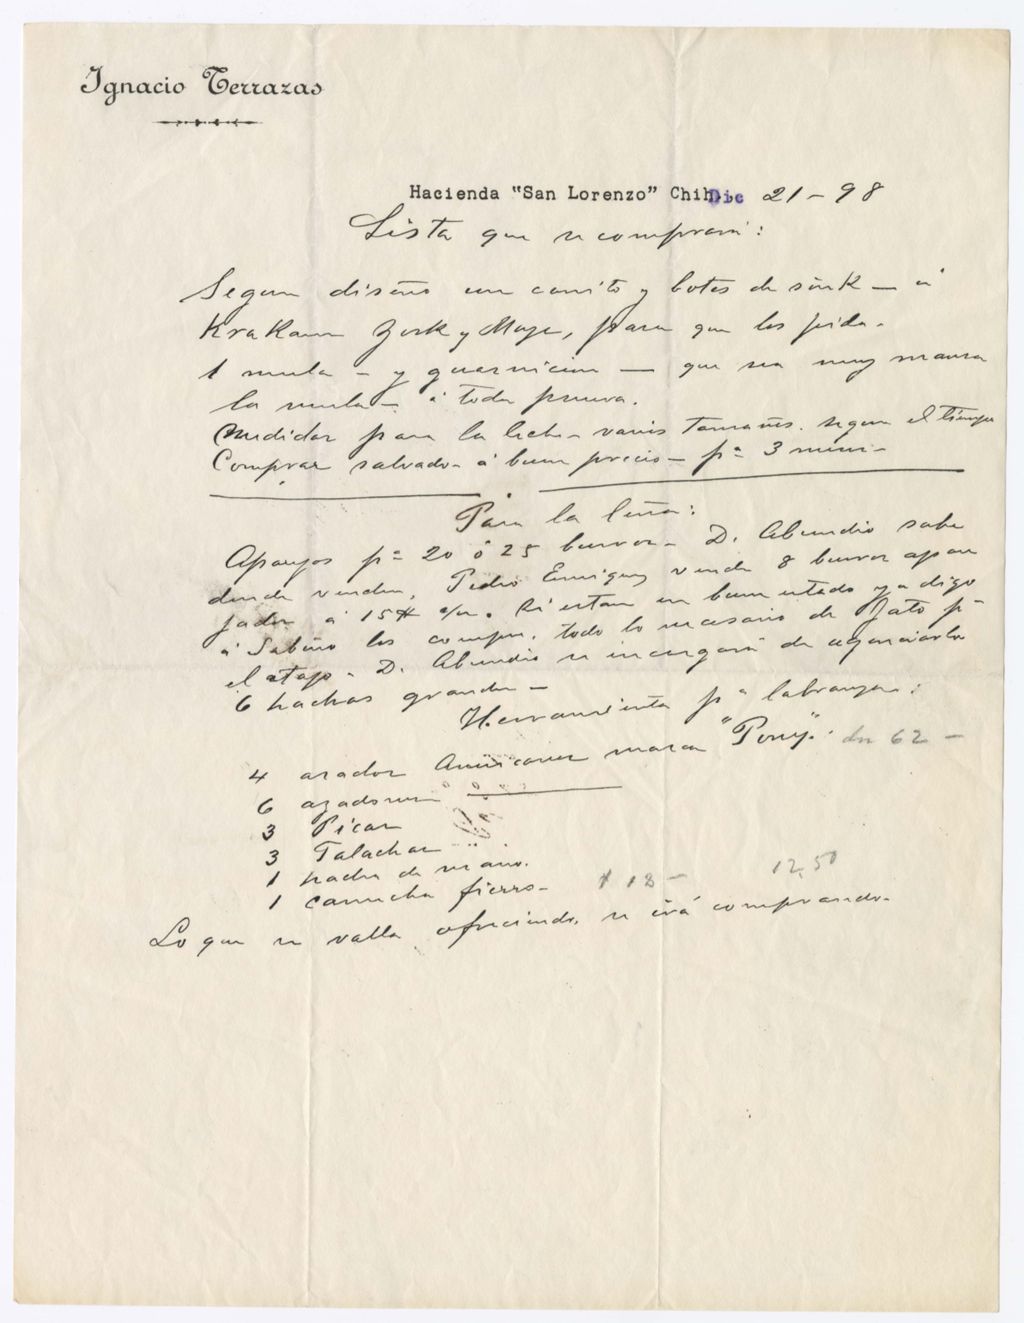 Ignacio Terrazas
Hacienda "San Lorenzo" Chih. Dic 21-98
Lista que se comprará:
Segun diseño un carrito y botes de sink - á
Krakaur Zork y Moye, para que los pida.
1 mula - y guarnicion - que sea muy mansa
la mula - á toda prueva.
Medidas para la leche - varios tamaños. segun el tiempo
Comprar salvado - á buen precio - pª 3 meses -
Para la leña:
Aparejos pª 20 ó 25 burros - D. Abundio sabe
donde venden. Pedro Enriquez vende 8 burros apare
jados á 15$ c/u. Si estan en buen estado ya digo
á Sabino los compre. todo lo necesario de jato pª
el atajo - D. Abundio se encargará de agenciarlo
6 hachas grandes -
Herramienta pª labranza:
4 arados Americanos marca "Pony". 62 -
6 azadones
3 Picos
3 Talachas
1 hacha de mano.
1 carrucha fierro - $ 18 - 12,50
Lo que se valla ofreciendo, se irá comprando.